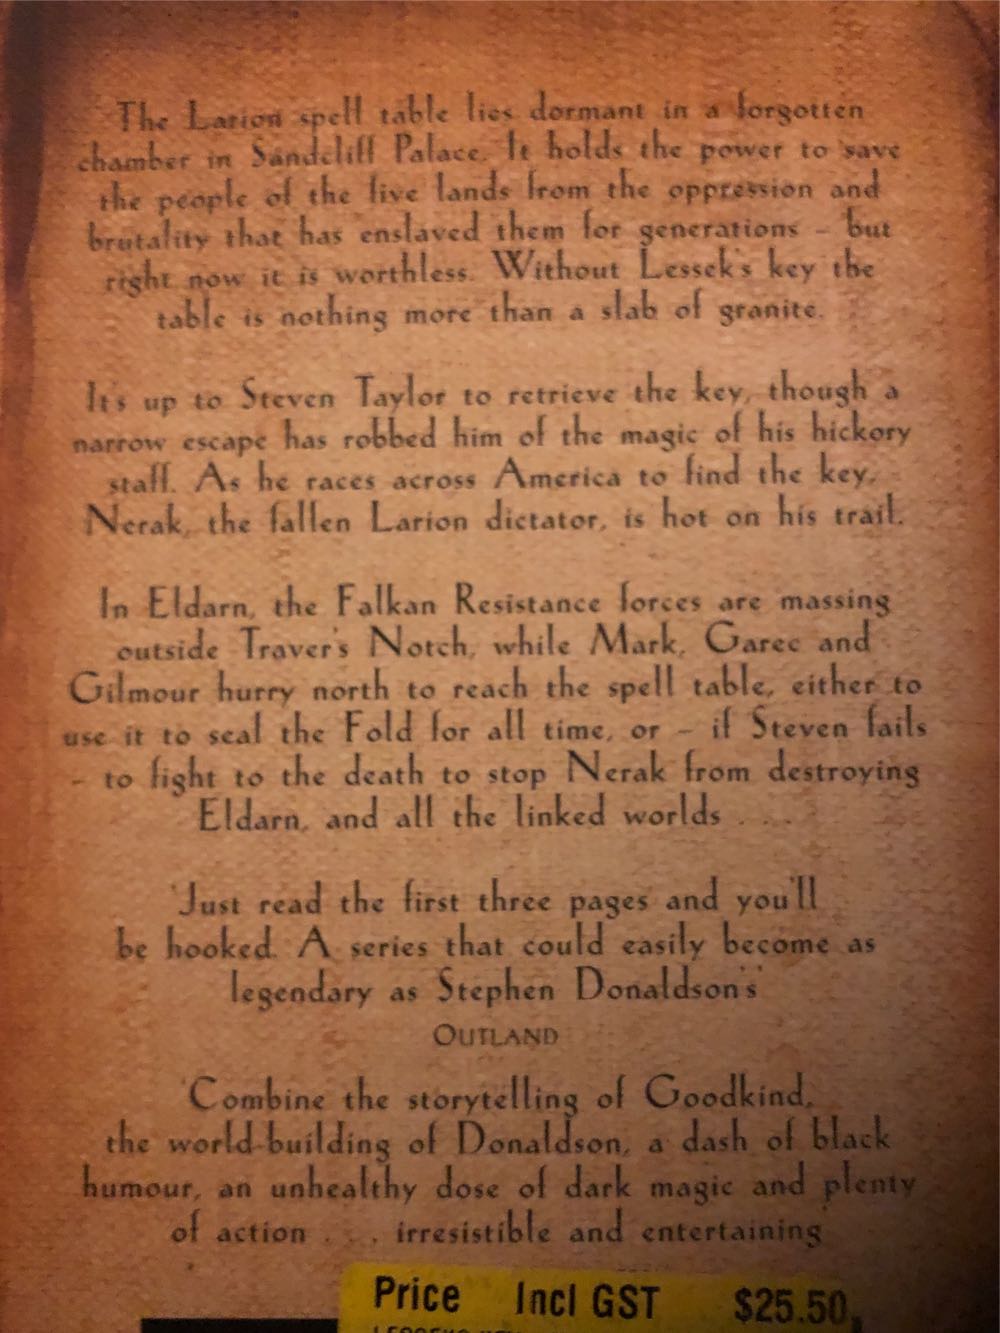 The Larion spell table lies dormant in a forgotten
chamber in Sandcliff Palace. It holds the power to save
the people of the five lands from the oppression and
brutality that has enslaved them for generations – but
right now it is worthless. Without Lessek's key the
table is nothing more than a slab of granite.
It's up to Steven Taylor to retrieve the key, though a
narrow escape has robbed him of the magic of his hickory
staff. As he races across America to find the key,
Nerak, the fallen Larion dictator, is hot on his trail.
In Eldarn, the Falkan Resistance forces are massing
outside Traver's Notch, while Mark, Garec and
Gilmour hurry north to reach the spell table, either to
use it to seal the Fold for all time, or – if Steven fails
– to fight to the death to stop Nerak from destroying
Eldarn, and all the linked worlds . . .
'Just read the first three pages and you'll
be hooked. A series that could easily become as
legendary as Stephen Donaldson's'
OUTLAND
'Combine the storytelling of Goodkind,
the world-building of Donaldson, a dash of black
humour, an unhealthy dose of dark magic and plenty
of action . . . irresistible and entertaining'
Price Incl GST $25.50